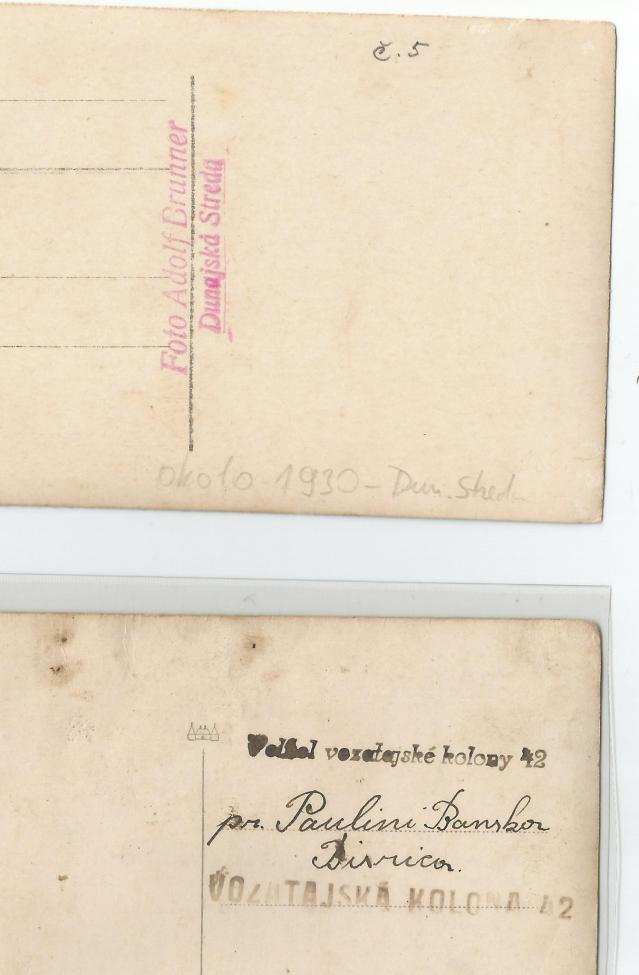 č. 5
Foto Adolf Brunner
Dunajská Streda
okolo 1930 - Dun. Streda
Velitel vozatajské kolony 42
pr. Paulini Banska
Bistrica.
VOZATAJSKÁ KOLONA 42